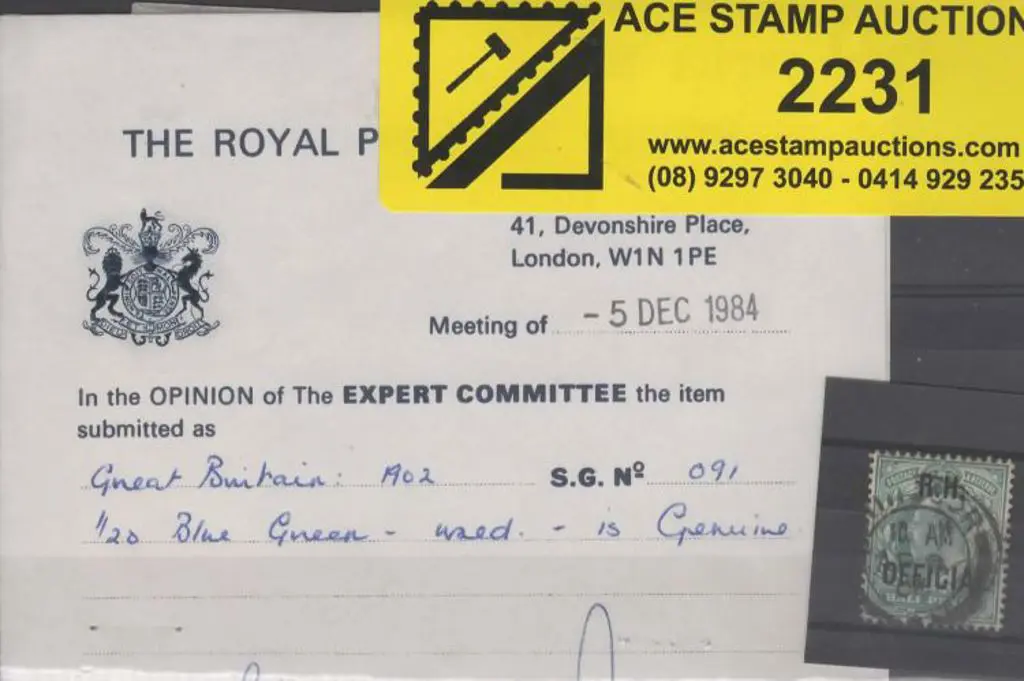 ACE STAMP AUCTION
2231
www.acestampauctions.com
(08) 9297 3040 - 0414 929 235
THE ROYAL P
41, Devonshire Place,
London, W1N 1PE
Meeting of - 5 DEC 1984
In the OPINION of The EXPERT COMMITTEE the item
submitted as
Great Britain: 1902 S.G. Nº 091
½d Blue Green - used. - is Genuine
R.H.
10 AM
OFFICIA